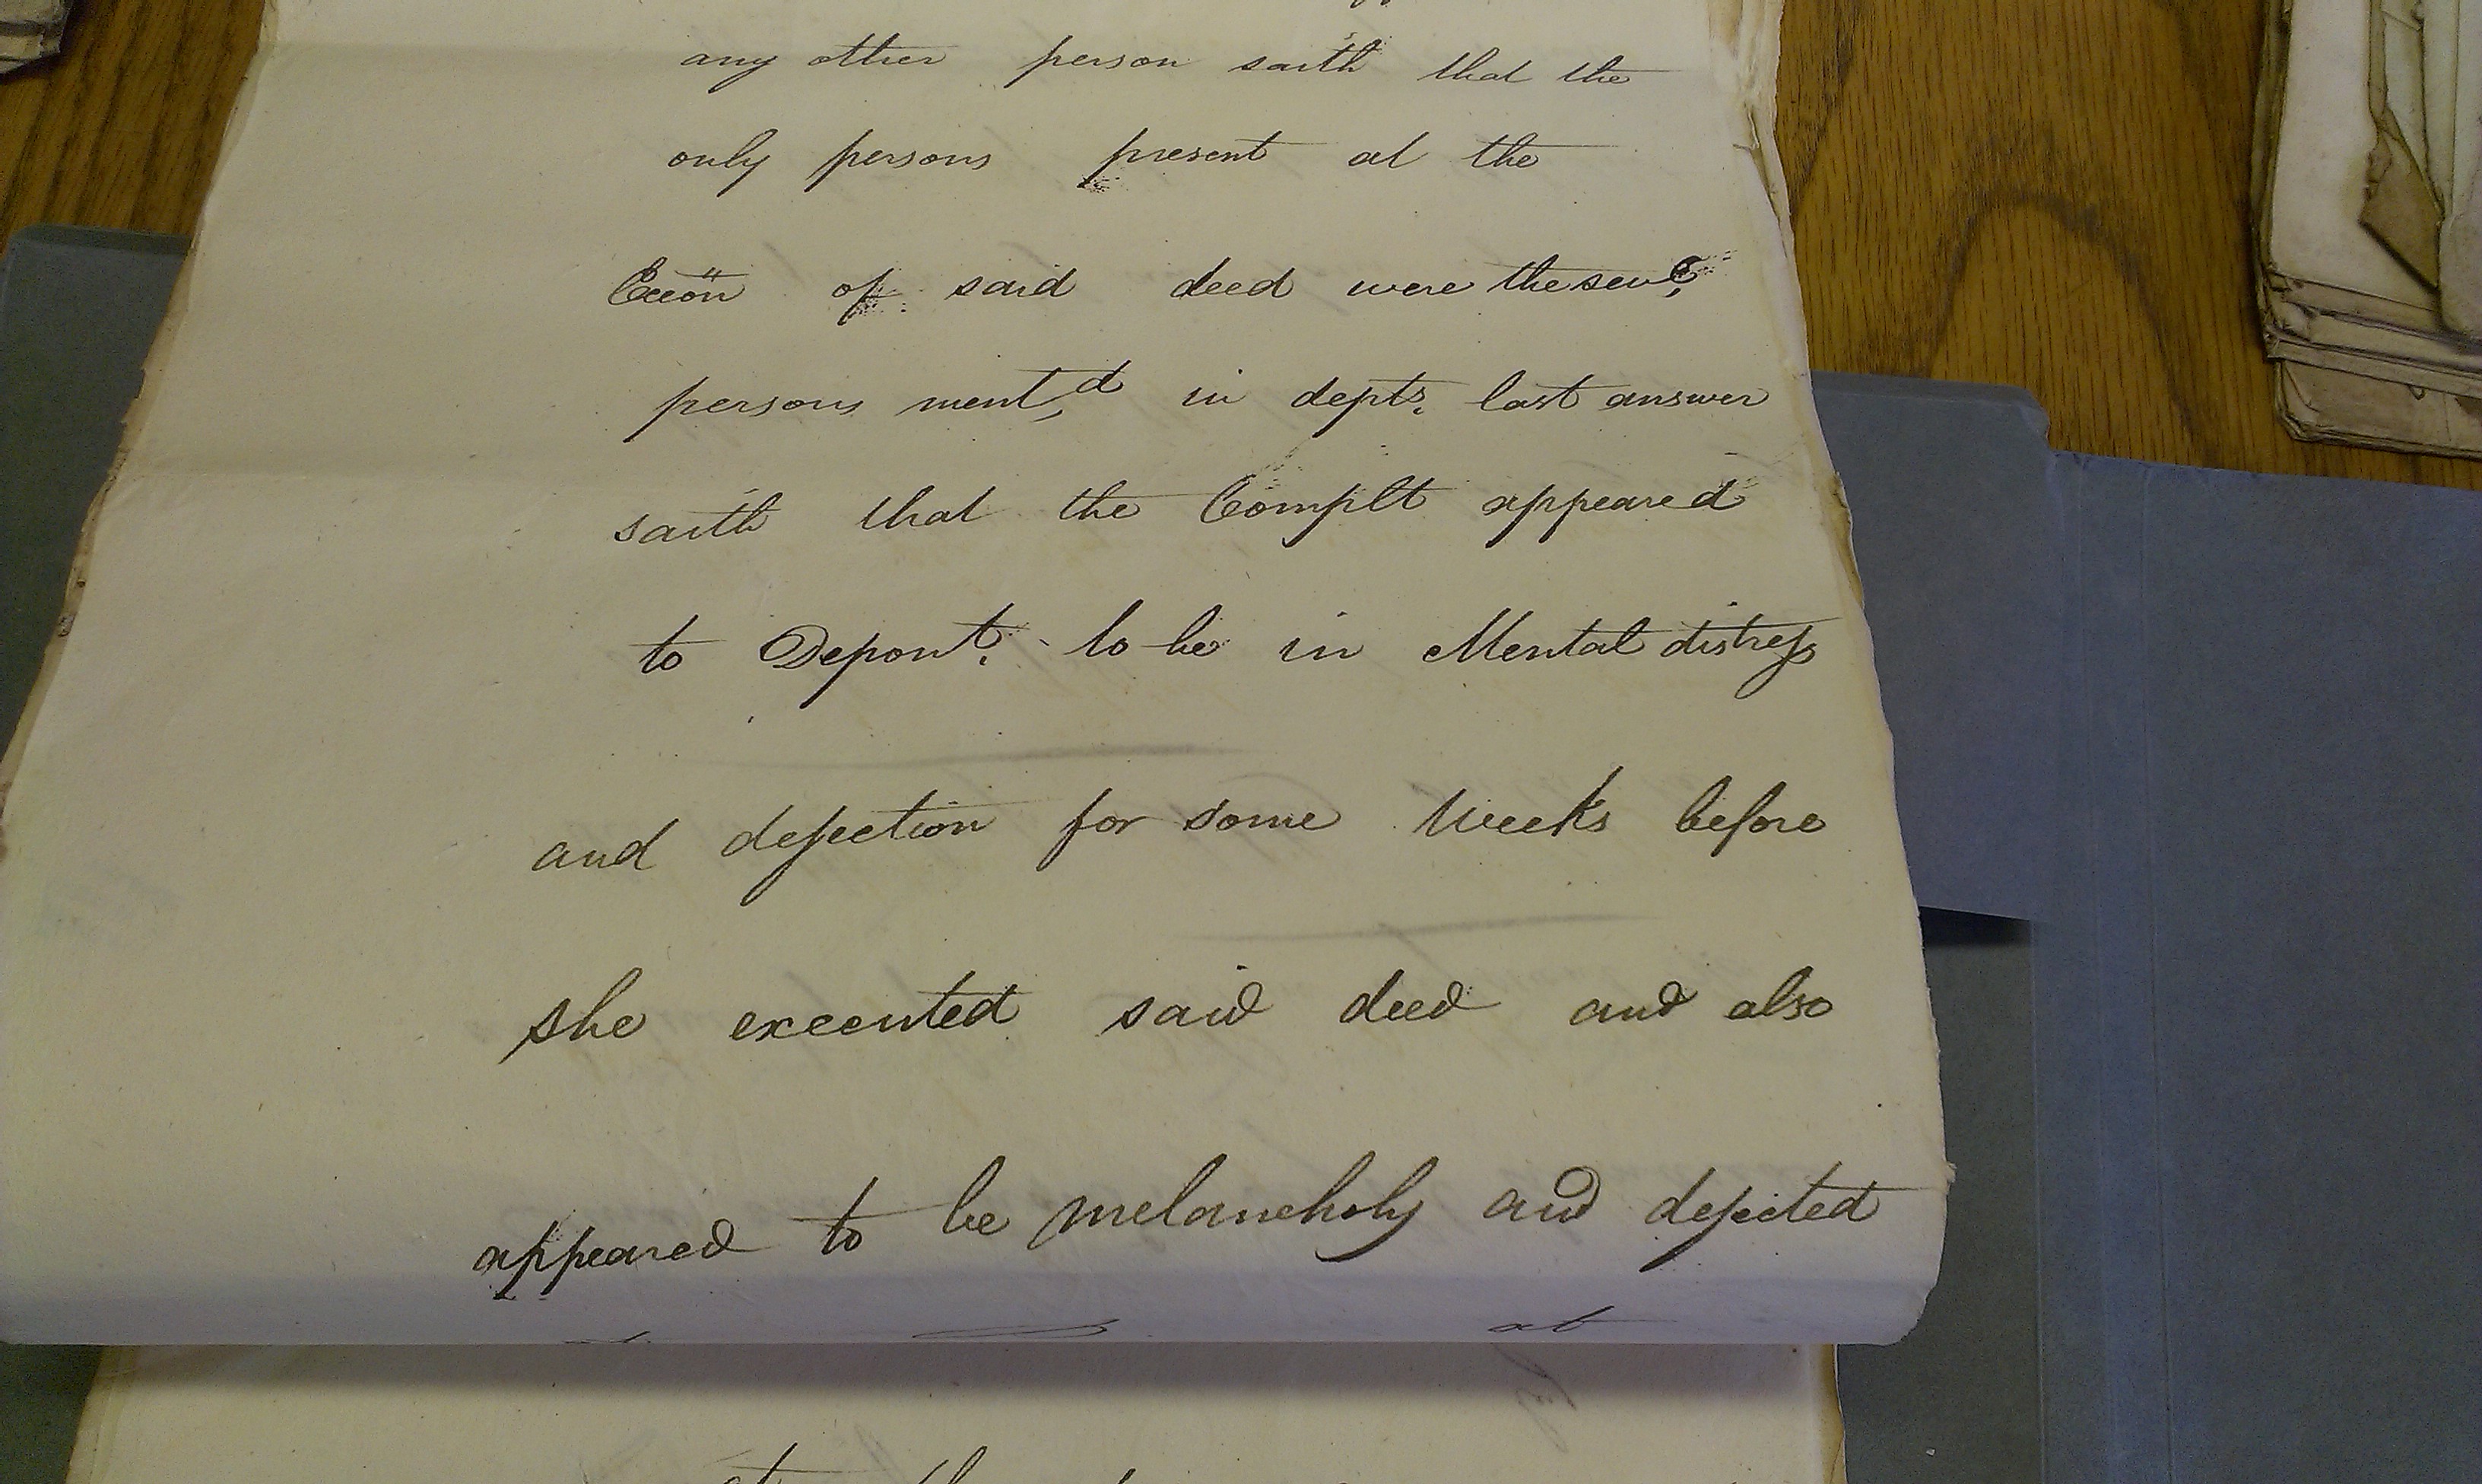 any other person saith that the
only persons present at the
Exôn of said deed were the sevl.
persons ment.d in depts. last answer
saith that the Complt appeared
to Depont. to be in Mental distress
and dejection for some Weeks before
she executed said deed and also
appeared to be melancholy and dejected
at